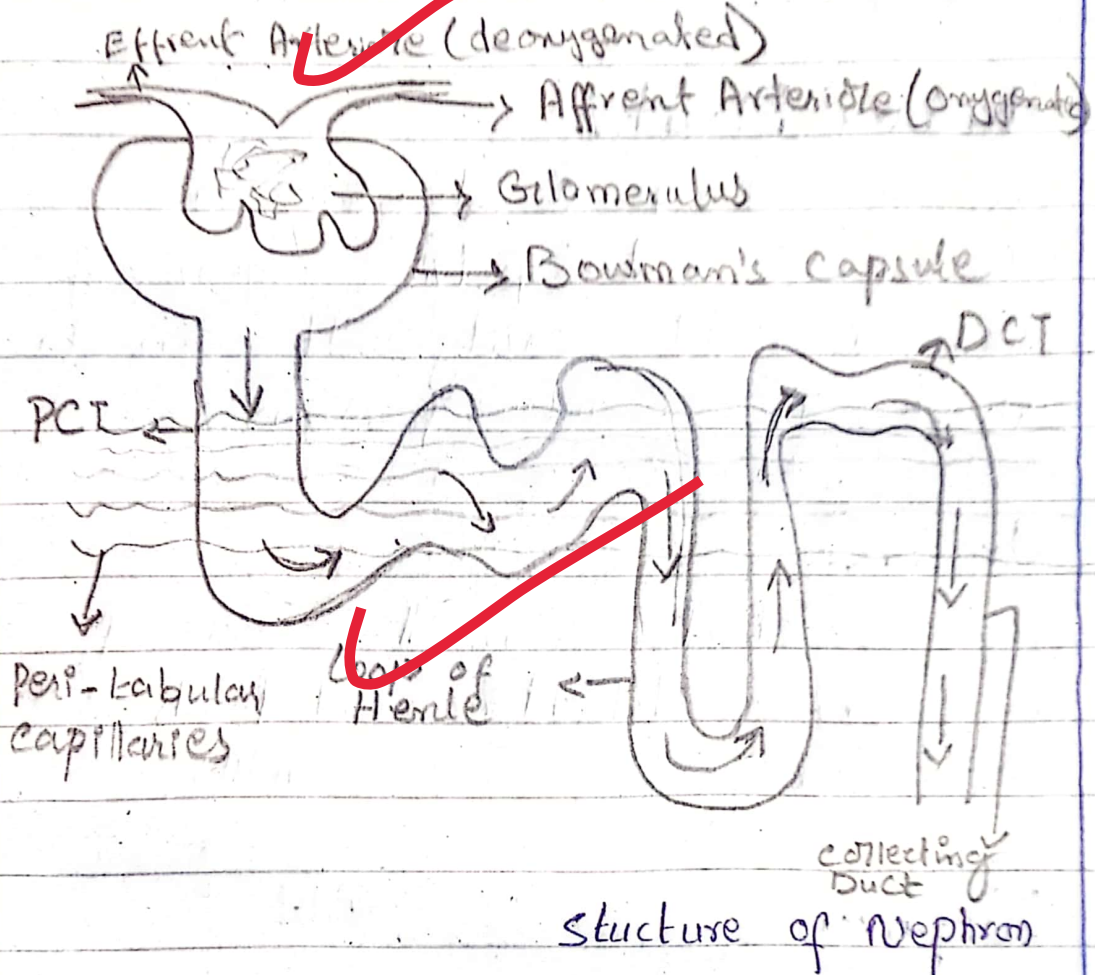 Effrent Arteriole (deoxygenated)
Affrent Arteriole (oxygenated)
Glomerulus
Bowman's capsule
DCT
PCT
Peri-tabular
capillaries
Loop of
Henle
collecting
Duct
Stucture of Nephron